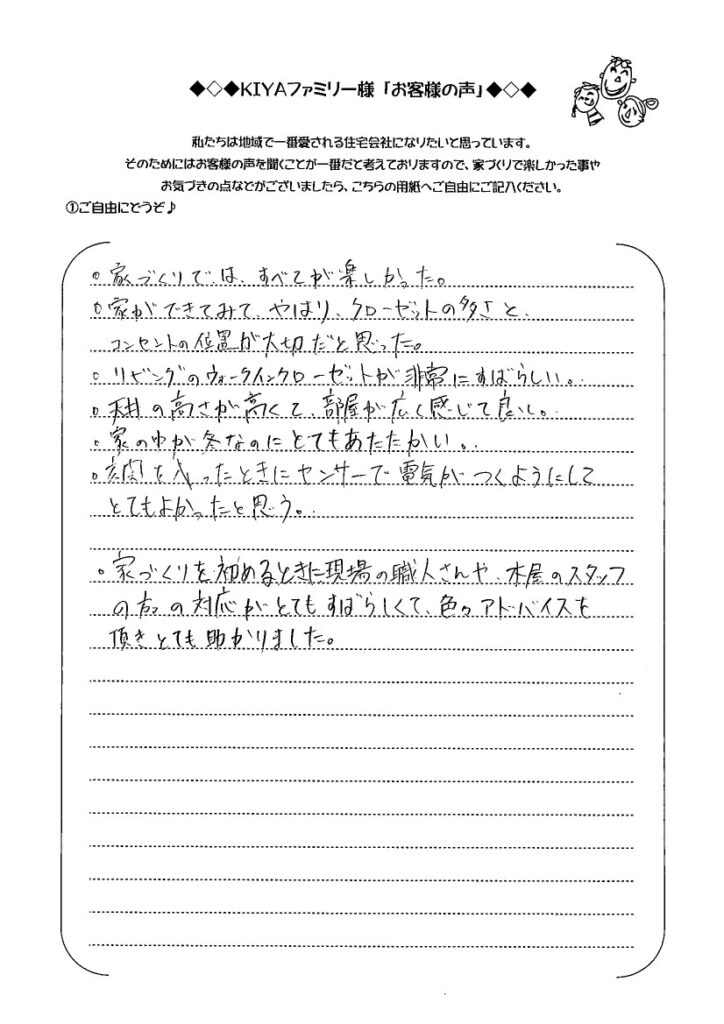 ◆◇◆KIYAファミリー様「お客様の声」◆◇◆
私たちは地域で一番愛される住宅会社になりたいと思っています。
そのためにはお客様の声を聞くことが一番だと考えておりますので、家づくりで楽しかった事や
お気づきの点などがございましたら、こちらの用紙へご自由にご記入ください。
①ご自由にどうぞ♪
○家づくりでは、すべてが楽しかった。
○家ができてみて、やはり、クローゼットの多さと、
コンセントの位置が大切だと思った。
○リビングのウォークインクローゼットが非常にすばらしい。
○天井の高さが高くて、部屋が広く感じて良い。
○家の中が冬なのにとてもあたたかい。
○玄関を入ったときにセンサーで電気がつくようにして
とてもよかったと思う。
○家づくりを初めるときに現場の職人さんや、木屋のスタッフ
の方々の対応がとてもすばらしくて、色々アドバイスを
頂きとても助かりました。